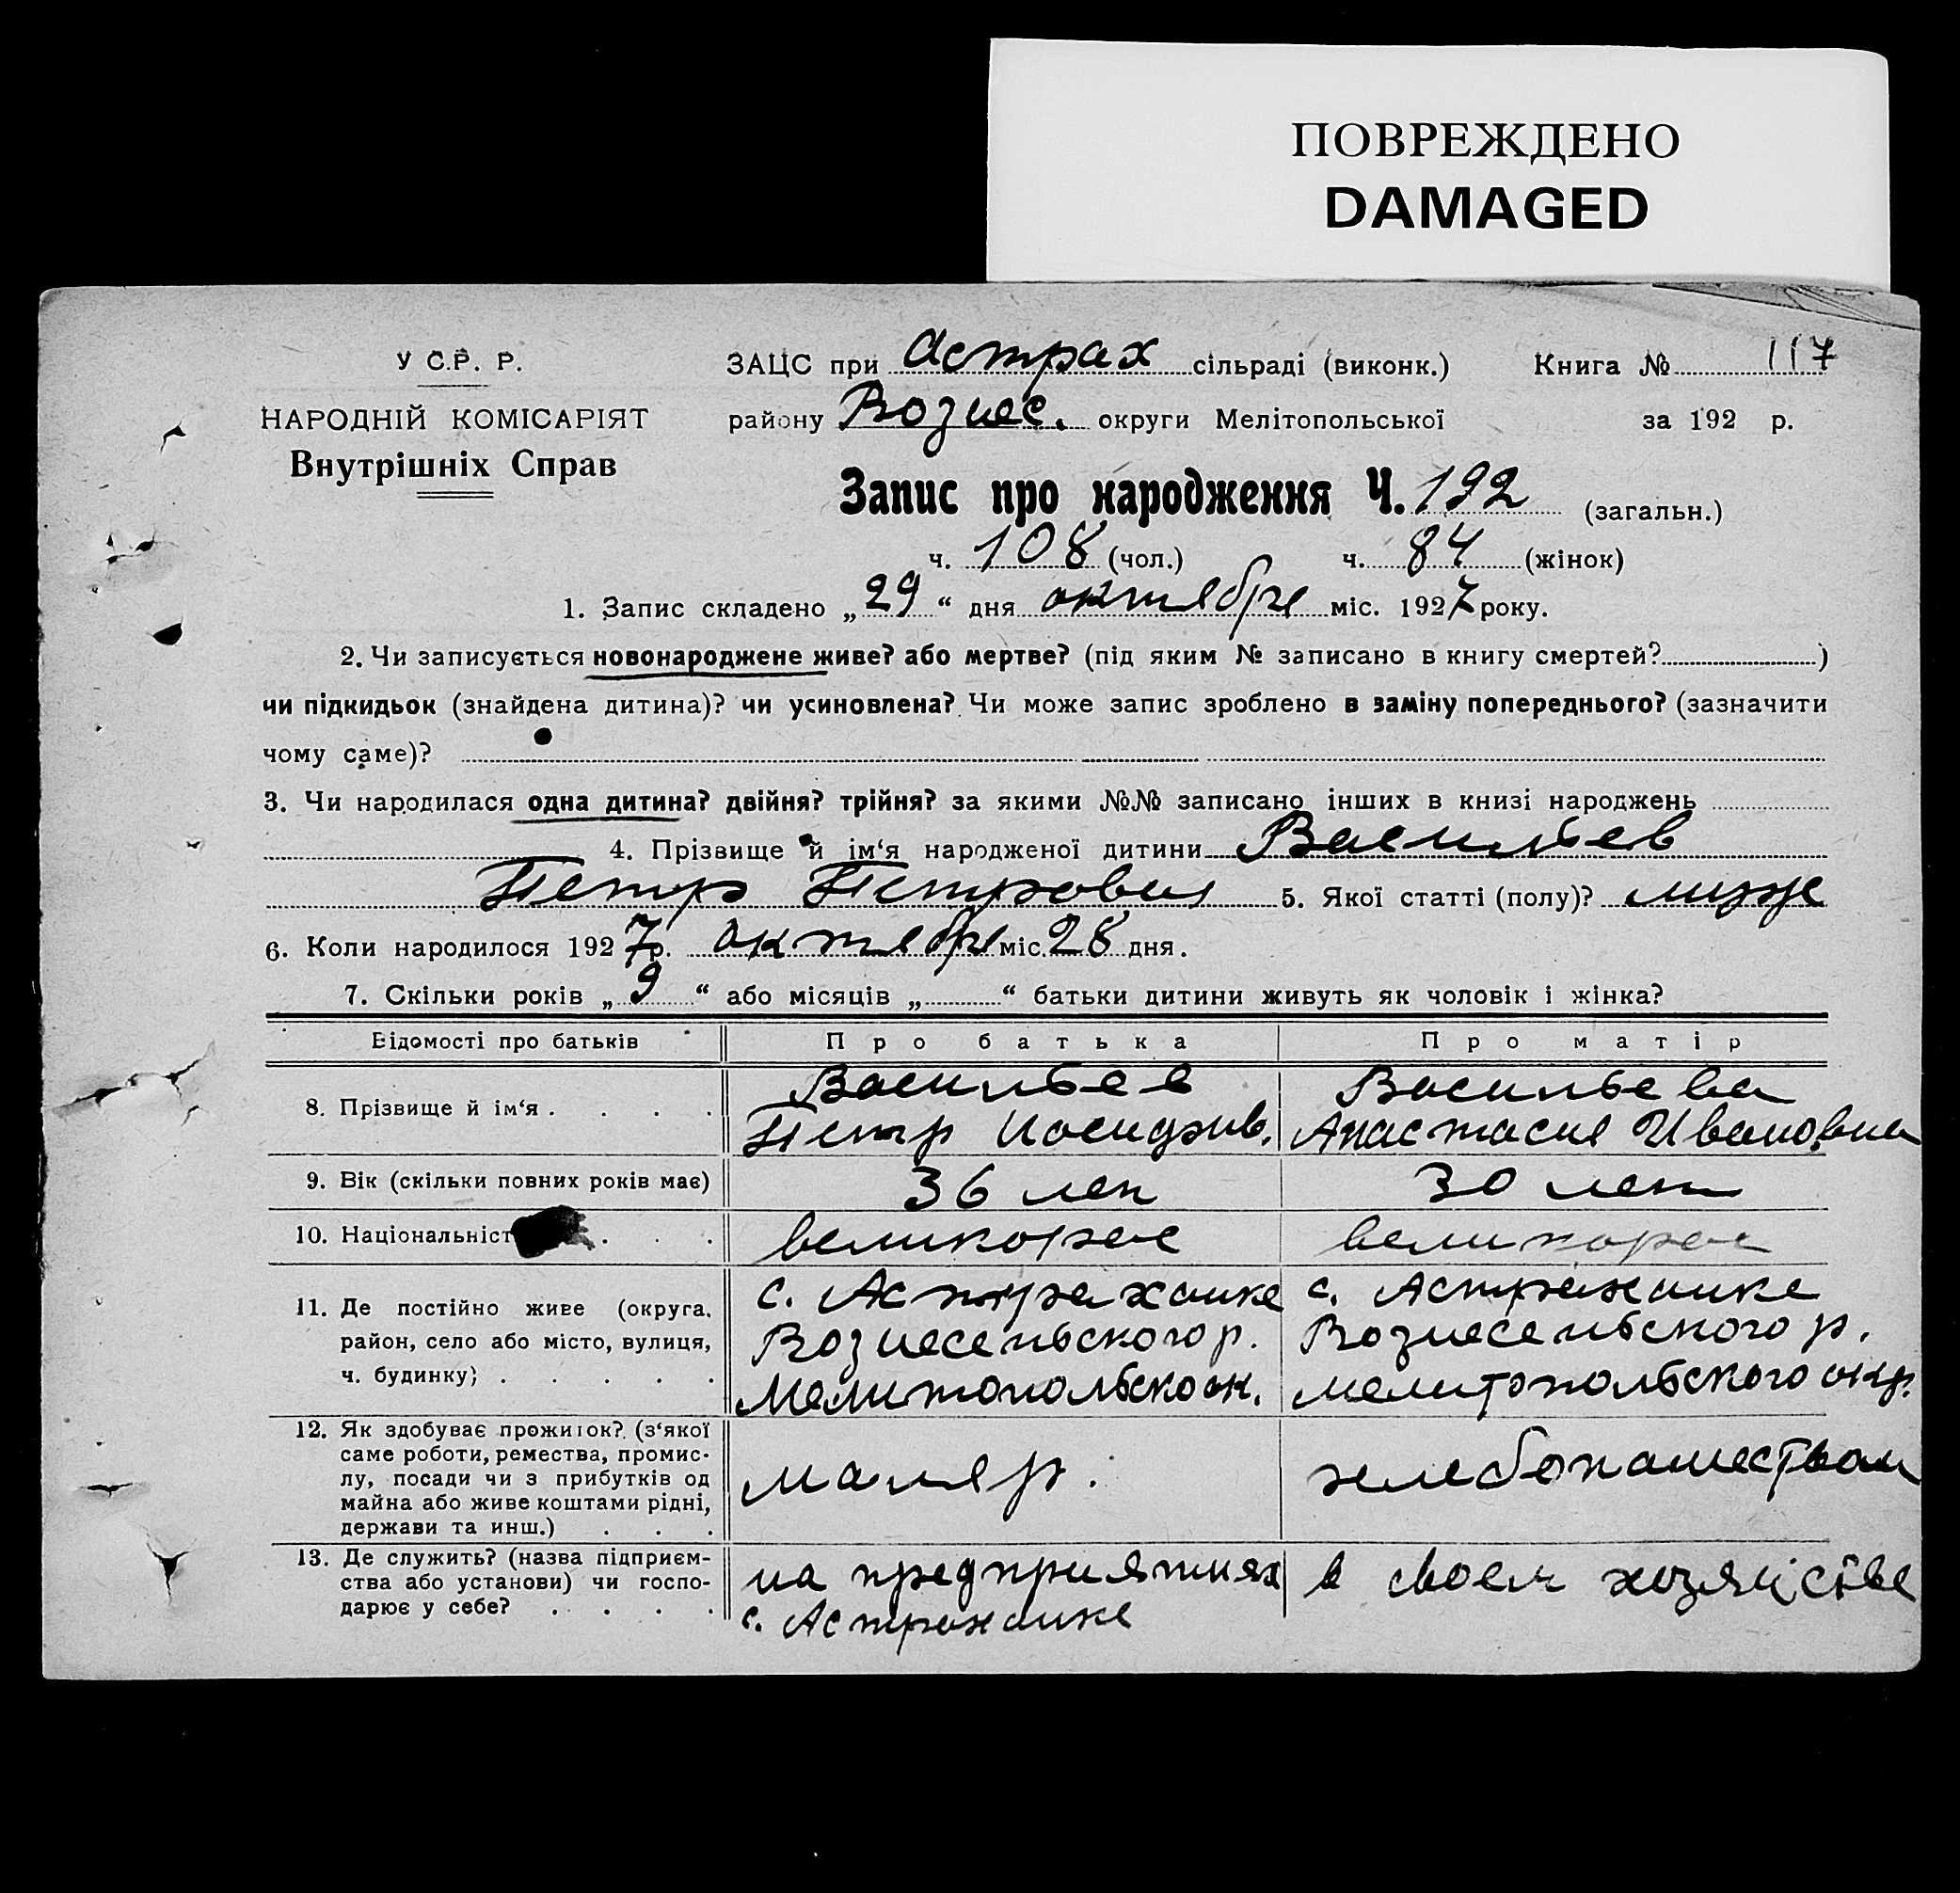 ПОВРЕЖДЕНО
DAMAGED
У С.Р. Р.
НАРОДНІЙ КОМІСАРІЯТ
Внутрішніх Справ
ЗАЦС при Астрах сільраді (виконк.) Книга № 117
району Вознес. округи Мелітопольської за 192 р.
Запис про народження Ч. 192 (загальн.)
ч. 108 (чол.) ч. 84 (жінок)
1. Запис складено „29“ дня октября міс. 1927 року.
2. Чи записується новонароджене живе? або мертве? (під яким № записано в книгу смертей? )
чи підкидьок (знайдена дитина)? чи усиновлена? Чи може запис зроблено в заміну попереднього? (зазначити
чому саме)?
3. Чи народилася одна дитина? двійня? трійня? за якими №№ записано інших в книзі народжень
4. Прізвище й ім‘я народженої дитини Васильев
Петр Петрович 5. Якої статті (полу)? муж
6. Коли народилося 1927 р. октября міс. 28 дня.
7. Скільки років „9“ або місяців „ “ батьки дитини живуть як чоловік і жінка?
Відомості про батьків Про батька Про матір
8. Прізвище й ім‘я . . . . Васильев Васильева
Петр Иосифов. Анастасия Ивановна
9. Вік (скільки повних років має) 36 лет 30 лет
10. Національніст . . . великорос великорос
11. Де постійно живе (округа, район, село або місто, вулиця, ч. будинку; . . . . .
с. Астраханке с. Астраханке
Вознесеньского р. Вознесеньского р.
Мелитопольско ок. Мелитопольского окр.
12. Як здобуває прожиток? (з‘якої
саме роботи, ремества, промис-
лу, посади чи з прибутків од
майна або живе коштами рідні,
держави та инш.) . . .
маляр. хлебопашеством
13. Де служить? (назва підприєм-
ства або установи) чи госпо-
дарює у себе? . . . .
на предприятиях в своем хозяйстве
с. Астраханке